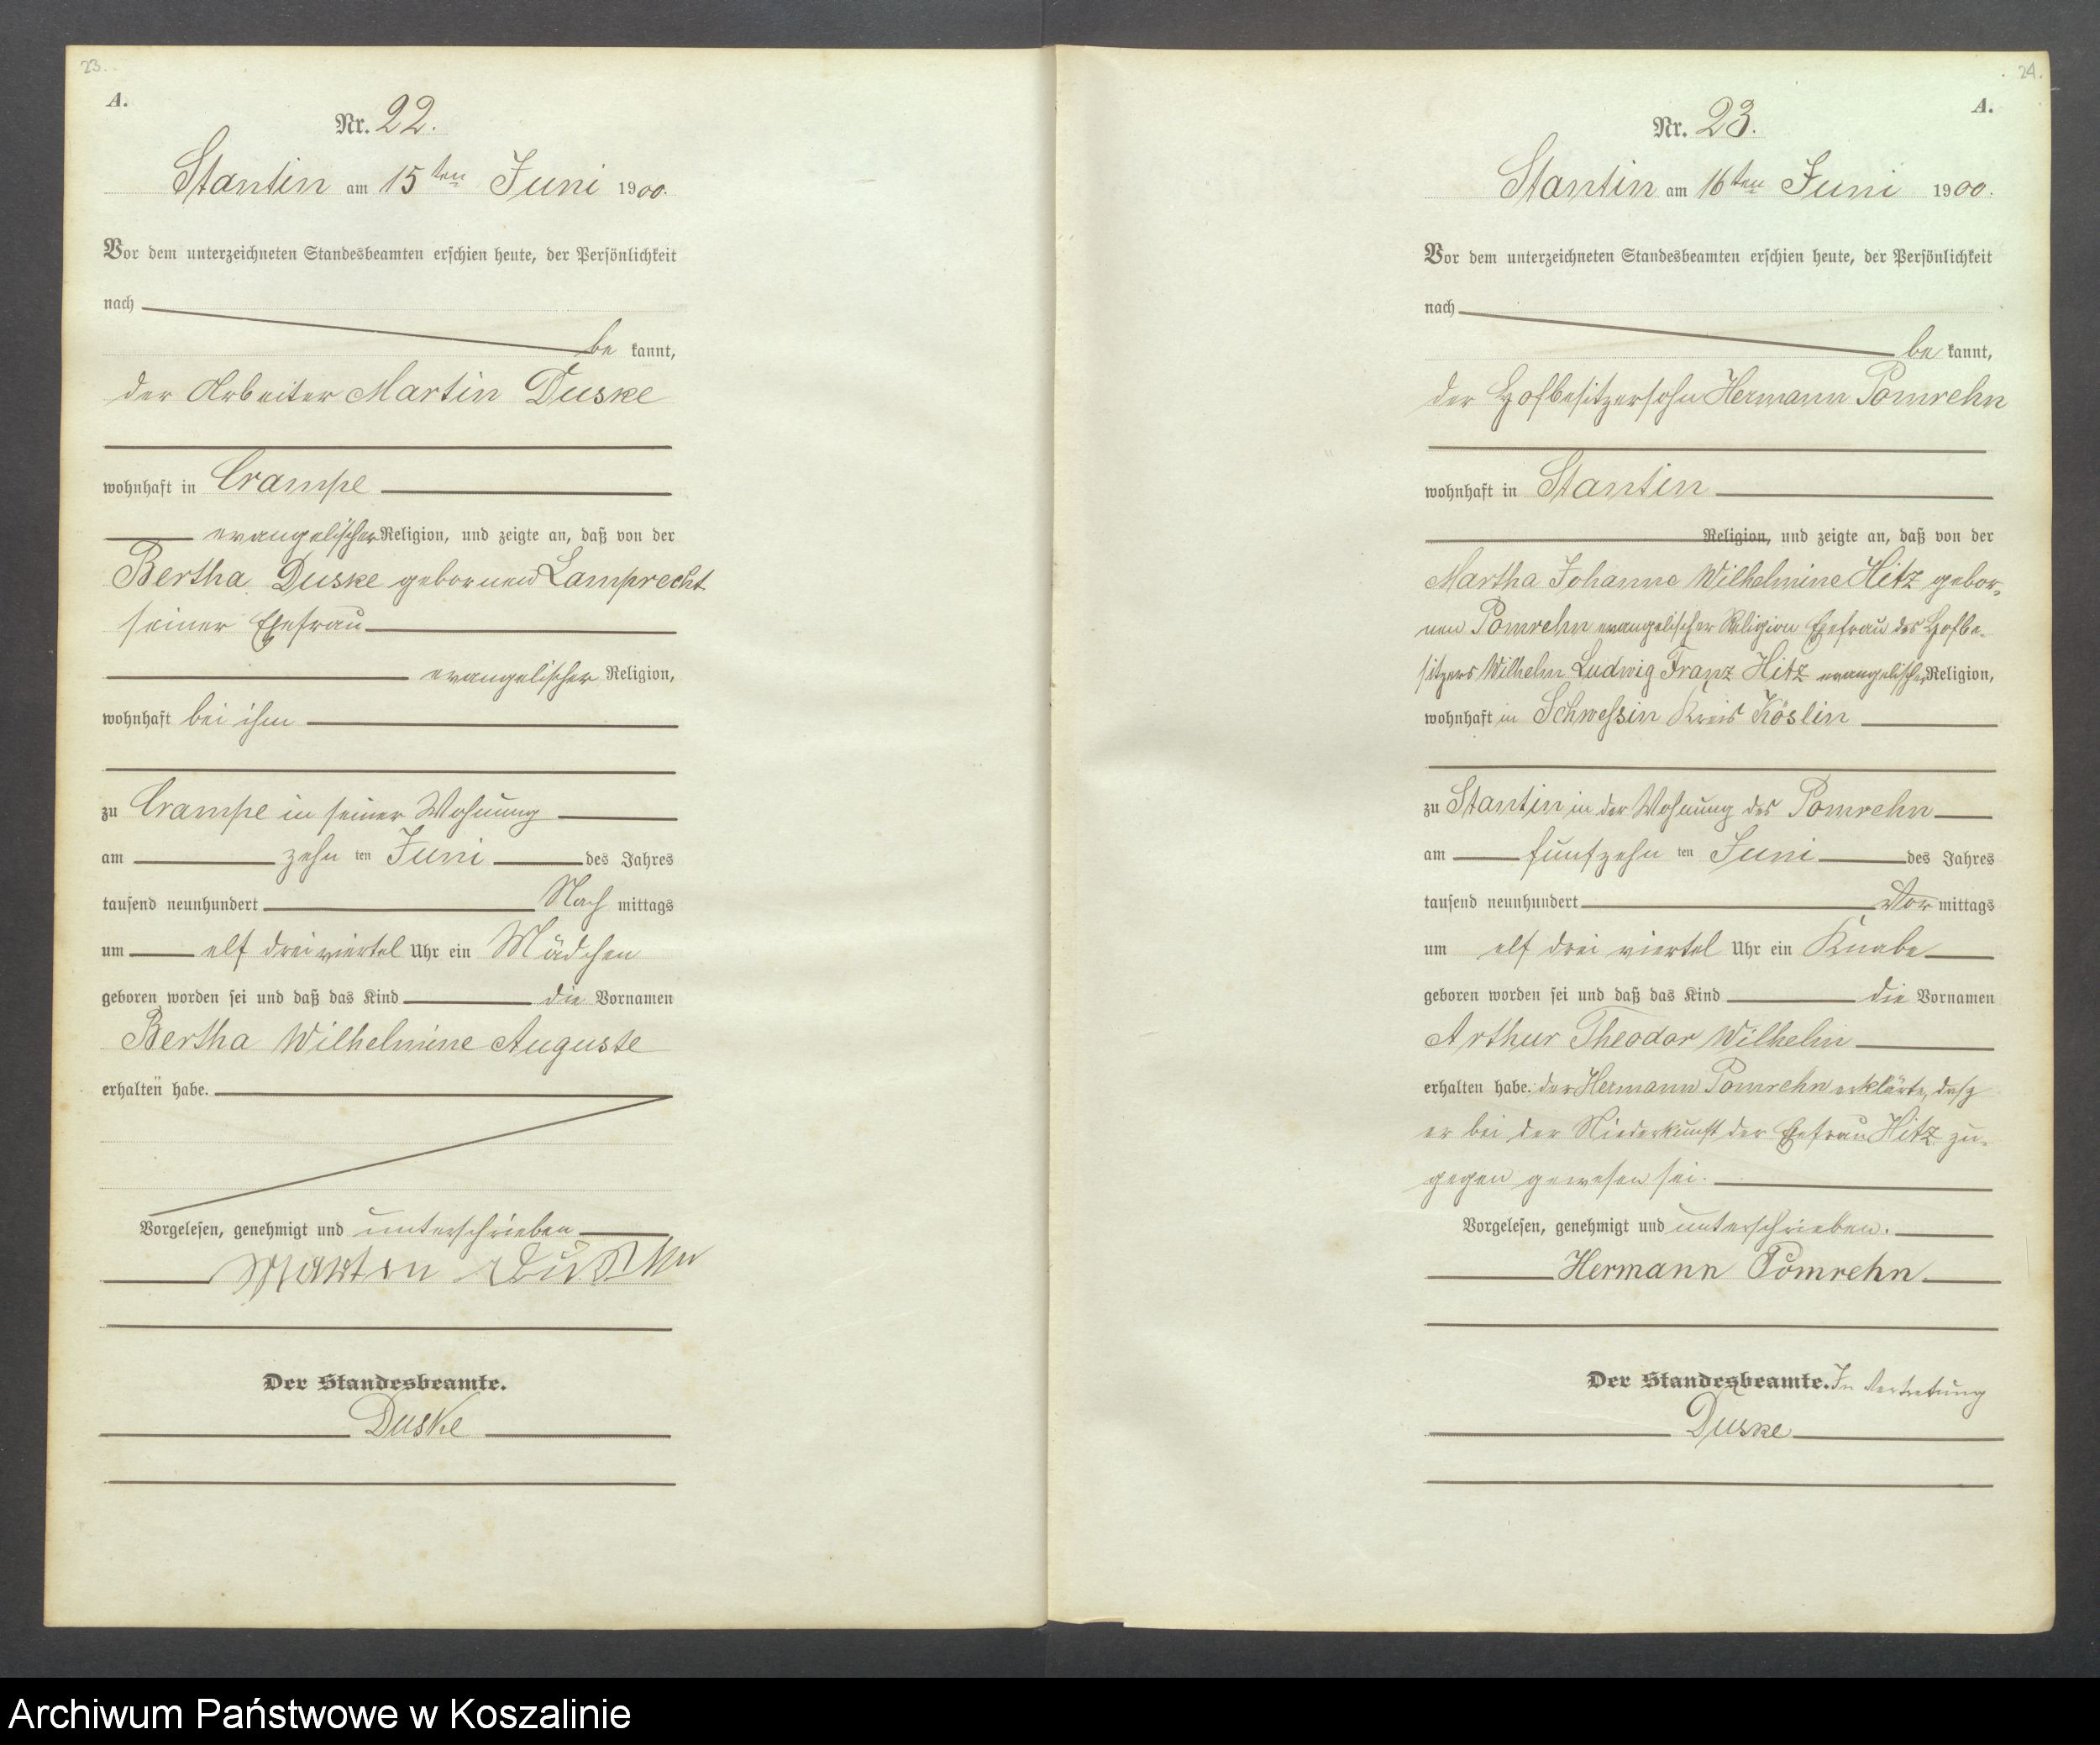 23.
A.
Nr. 22.
Stantin am 15ten Juni 1900.
Vor dem unterzeichneten Standesbeamten erschien heute, der Persönlichkeit
nach
be kannt,
der Arbeiter Martin Duske
wohnhaft in Crampe
evangelischer Religion, und zeigte an, daß von der
Bertha Duske gebornen Lamprecht
seiner Ehefrau
evangelischer Religion,
wohnhaft bei ihm
zu Crampe in seiner Wohnung
am zehn ten Juni des Jahres
tausend neunhundert Nach mittags
um elf drei viertel Uhr ein Mädchen
geboren worden sei und daß das Kind die Vornamen
Bertha Wilhelmine Auguste
erhalten habe.
Vorgelesen, genehmigt und unterschrieben
Martin Duske
Der Standesbeamte.
Duske
24.
A.
Nr. 23.
Stantin am 16ten Juni 1900.
Vor dem unterzeichneten Standesbeamten erschien heute, der Persönlichkeit
nach
be kannt,
der Hofbesitzersohn Hermann Pomrehn
wohnhaft in Stantin
Religion, und zeigte an, daß von der
Martha Johanne Wilhelmine Hitz gebor-
nen Pomrehn evangelischer Religion Ehefrau des Hofbe-
sitzers Wilhelm Ludwig Franz Hitz evangelischer Religion,
wohnhaft in Schwessin Kreis Köslin
zu Stantin in der Wohnung des Pomrehn
am fünfzehn ten Juni des Jahres
tausend neunhundert Vor mittags
um elf drei viertel Uhr ein Knabe
geboren worden sei und daß das Kind die Vornamen
Arthur Theodor Wilhelm
erhalten habe. der Hermann Pomrehn erklärte, dasz
er bei der Niederkunft der Ehefrau Hitz zu-
gegen gewesen sei.
Vorgelesen, genehmigt und unterschrieben.
Hermann Pomrehn
Der Standesbeamte. In Vertretung
Duske
Archiwum Państwowe w Koszalinie